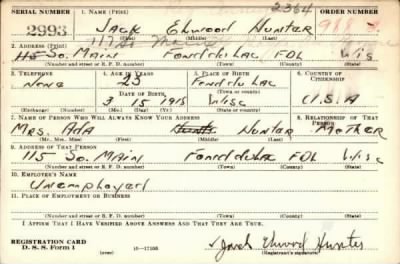 SERIAL NUMBER 1. NAME (Print) 2364 ORDER NUMBER
2993 JACK Elwood Hunter
(First) (Middle) (Last)
2. ADDRESS (Print)
115 So. MAin Fond du LAc FDL Wis
(Number and street or R. F. D. number) (Town) (County) (State)
3. TELEPHONE 4. AGE IN YEARS 5. PLACE OF BIRTH 6. COUNTRY OF CITIZENSHIP
None 23 Fond du Lac
DATE OF BIRTH (Town or county)
3 15 1918 Wisc U.S.A
(Exchange) (No.) (Mo.) (Day) (Yr.) (State or country)
7. NAME OF PERSON WHO WILL ALWAYS KNOW YOUR ADDRESS 8. RELATIONSHIP OF THAT PERSON
Mrs. Ada Hunter Mother
(Mr., Mrs., Miss) (First) (Middle) (Last)
9. ADDRESS OF THAT PERSON
115 So. MAin Fond du Lac FDL Wisc
(Number and street or R. F. D. number) (Town) (County) (State)
10. EMPLOYER'S NAME
Unemployed
11. PLACE OF EMPLOYMENT OR BUSINESS
(Number and street or R. F. D. number) (Town) (County) (State)
I AFFIRM THAT I HAVE VERIFIED ABOVE ANSWERS AND THAT THEY ARE TRUE.
REGISTRATION CARD
D. S. S. Form 1 16—17105 Jack Elwood Hunter
(Registrant's signature)